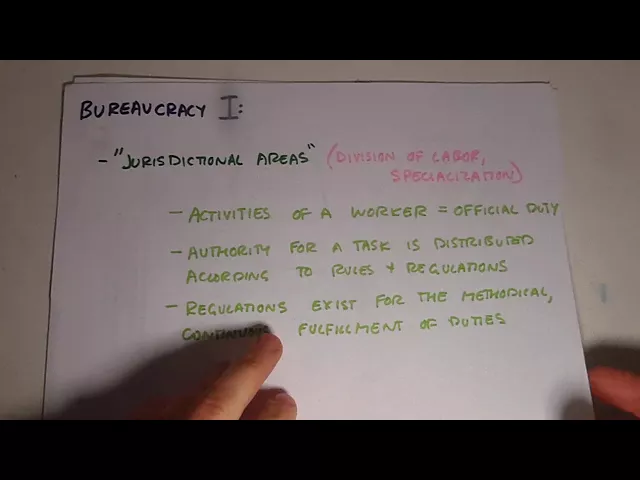 BUREAUCRACY I:
- "JURISDICTIONAL AREAS" (DIVISION OF LABOR,
SPECIALIZATION)
- ACTIVITIES OF A WORKER = OFFICIAL DUTY
- AUTHORITY FOR A TASK IS DISTRIBUTED
ACCORDING TO RULES + REGULATIONS
- REGULATIONS EXIST FOR THE METHODICAL,
CONTINUOUS FULFILLMENT OF DUTIES